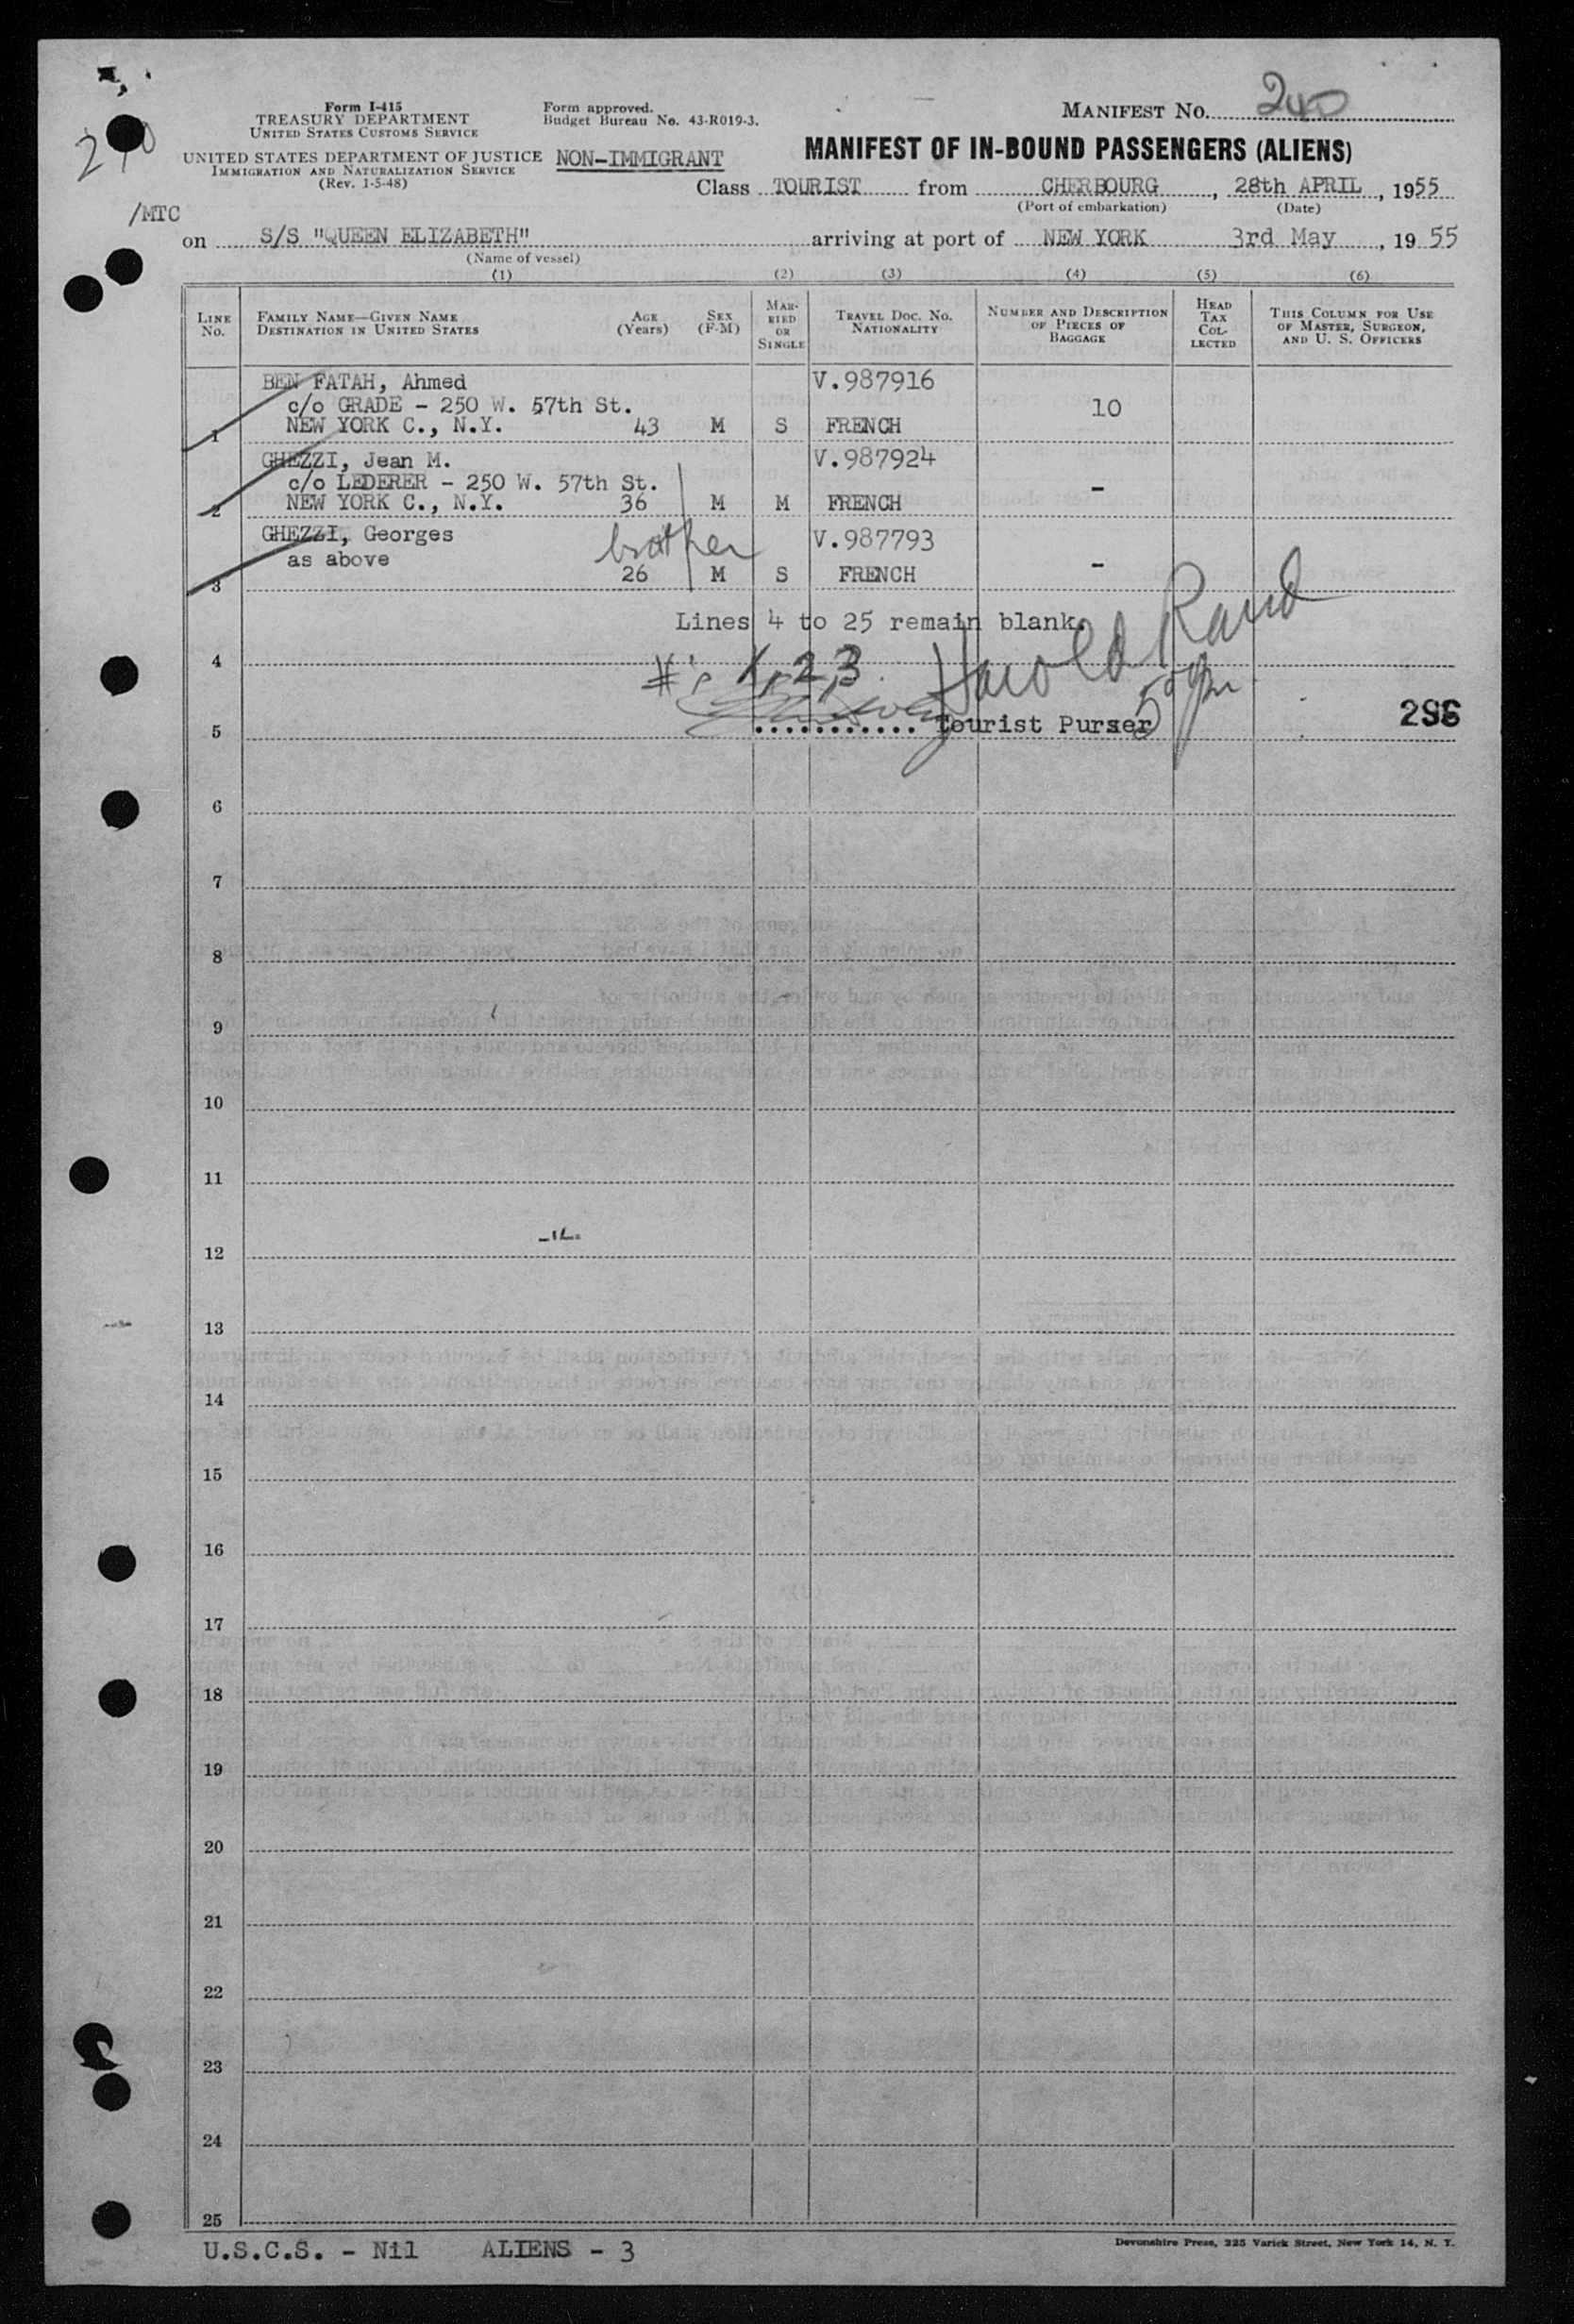 240
Form I-415
TREASURY DEPARTMENT
UNITED STATES CUSTOMS SERVICE
UNITED STATES DEPARTMENT OF JUSTICE
IMMIGRATION AND NATURALIZATION SERVICE
(Rev. 1-5-48)
Form approved.
Budget Bureau No. 43-R019-3.
NON-IMMIGRANT
MANIFEST NO. 240
MANIFEST OF IN-BOUND PASSENGERS (ALIENS)
Class TOURIST from CHERBOURG, 28th APRIL, 1955
(Port of embarkation) (Date)
/MTC
on S/S "QUEEN ELIZABETH" arriving at port of NEW YORK 3rd May, 1955
(Name of vessel)
(1) (2) (3) (4) (5) (6)
LINE NO. FAMILY NAME—GIVEN NAME DESTINATION IN UNITED STATES AGE (Years) SEX (F-M) MARRIED OR SINGLE TRAVEL DOC. NO. NATIONALITY NUMBER AND DESCRIPTION OF PIECES OF BAGGAGE HEAD TAX COLLECTED THIS COLUMN FOR USE OF MASTER, SURGEON, AND U. S. OFFICERS
BEN FATAH, Ahmed V.987916
c/o GRADE - 250 W. 57th St. 10
1 NEW YORK C., N.Y. 43 M S FRENCH
GHEZZI, Jean M. V.987924
c/o LEDERER - 250 W. 57th St. -
2 NEW YORK C., N.Y. 36 M M FRENCH
GHEZZI, Georges brother V.987793
as above -
3 26 M S FRENCH
Lines 4 to 25 remain blank.
4 #'s 1, 2, 3 Harold Rand
5 ........... Tourist Purser 296
6
7
8
9
10
11
12
13
14
15
16
17
18
19
20
21
22
23
24
25
U.S.C.S. - Nil ALIENS - 3
Devonshire Press, 225 Varick Street, New York 14, N. Y.